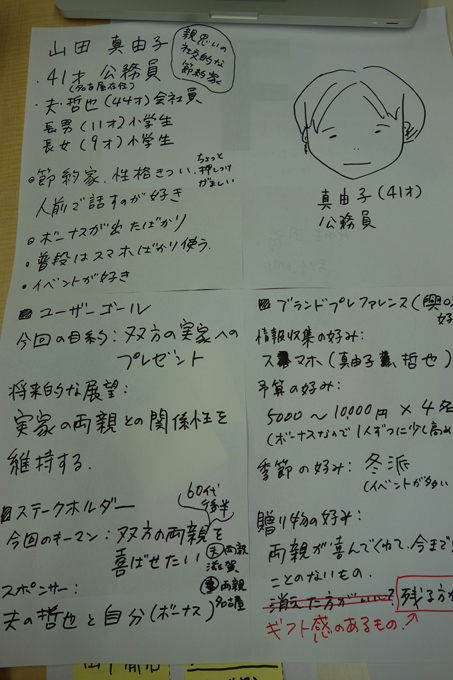 山田 真由子
親思いの
社交的な
節約家
・41才 公務員
(名古屋在住)
・夫・哲也(44才)会社員
長男(11才)小学生
長女(9才)小学生
・節約家、性格きつい、ちょっと
押しつけ
がましい
人前で話すのが好き
・ボーナスが出たばかり
・普段はスマホばかり使う。
・イベントが好き
真由子(41才)
公務員
ユーザーゴール
今回の目的:双方の実家への
プレゼント
将来的な展望:
実家の両親との関係性を
維持する。
ステークホルダー
60代
後半
今回のキーマン:双方の両親を
喜ばせたい
夫 両親
滋賀
妻 両親
名古屋
スポンサー:
夫の哲也と自分(ボーナス)
ブランドプレファレンス(興
好
情報収集の好み:
スマホ(真由子 哲也)
予算の好み:
5000〜10,000円×4名
(ボーナスなので1人ずつに少し高め
季節の好み:冬派
(イベントが多い
贈り物の好み:
両親が喜んでくれて、今まで
ことのないもの。
消えた方がいい?
残る方が
ギフト感のあるもの。